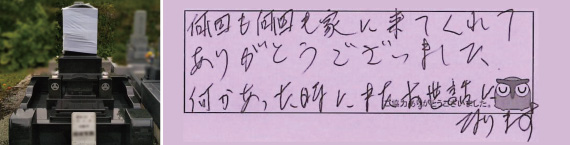 何回も何回も家に来てくれて
ありがとうございました
何かあった時にまたお世話に
なります
ご協力ありがとうございました。